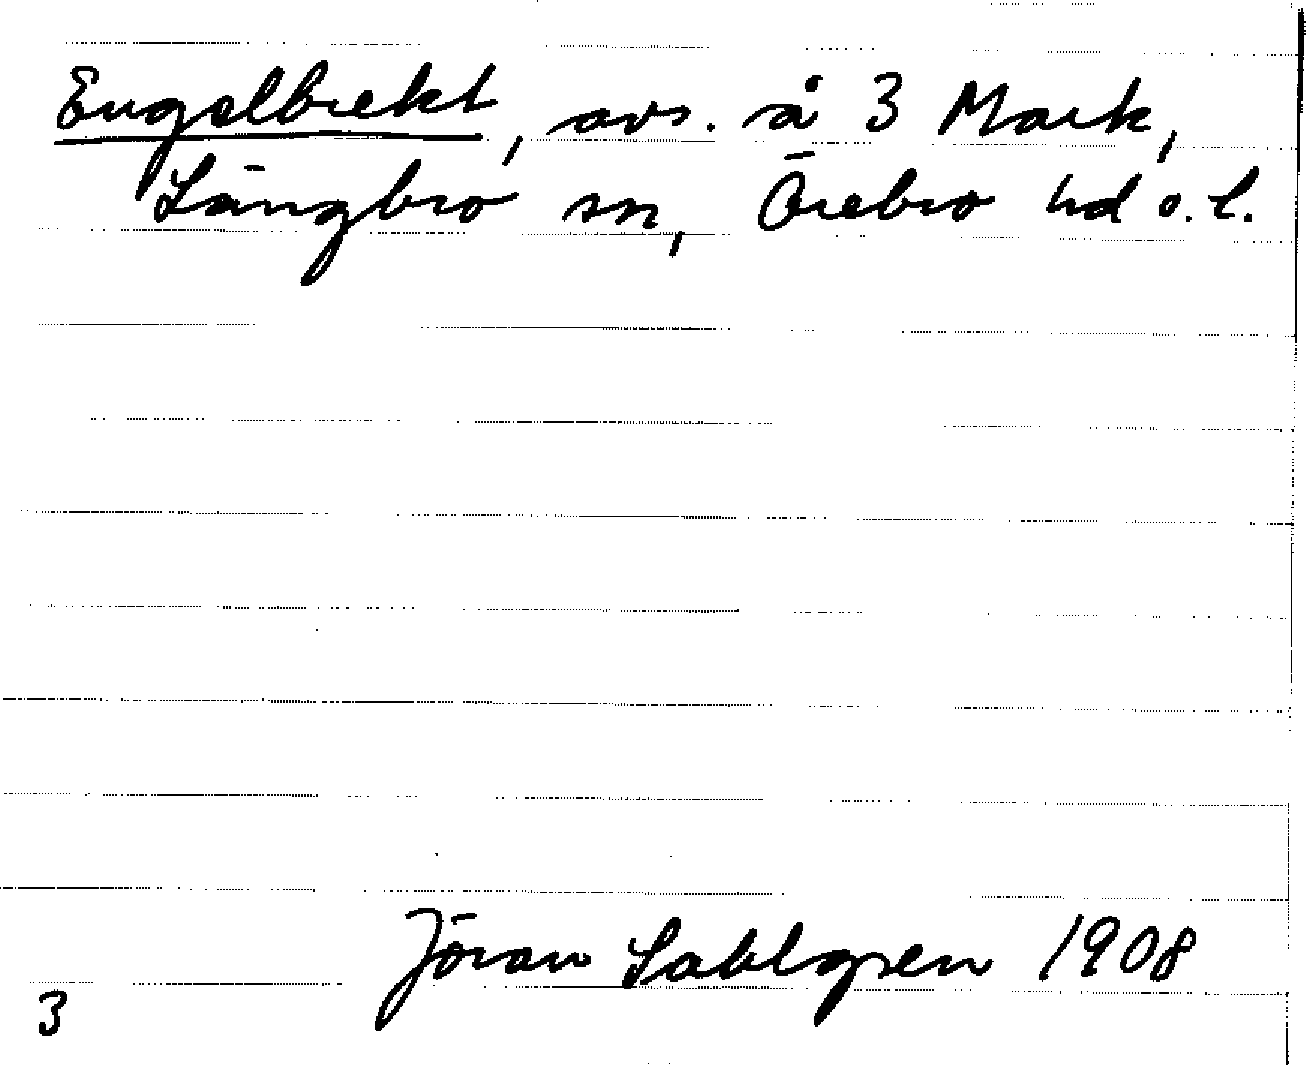 Engelbrekt, avs. å 3 Mark,
Längbro sn, Örebro hd o.l.
Jöran Sahlgren 1908
3